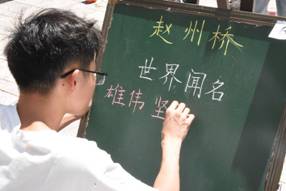 赵州桥
世界闻名
雄伟坚